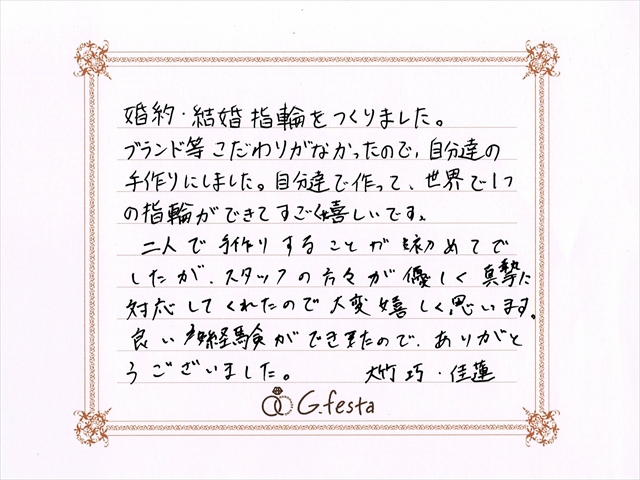 婚約・結婚指輪をつくりました。
ブランド等こだわりがなかったので、自分達の
手作りにしました。自分達で作って、世界で1つ
の指輪ができてすごく嬉しいです。
二人で手作りすることが初めてで
したが、スタッフの方々が優しく真摯に
対応してくれたので大変嬉しく思います。
良い経験ができたので、ありがと
うございました。 大竹 巧・佳蓮
G.festa